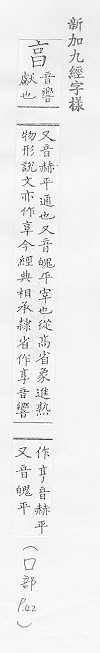 新加九經字樣
亯
音響
獻也
又音赫平通也又音魄平宰也從高省象進熟
物形說文亦作今經典相承隸省作享音響
作亨音赫平
又音魄平
(口部 P.42)